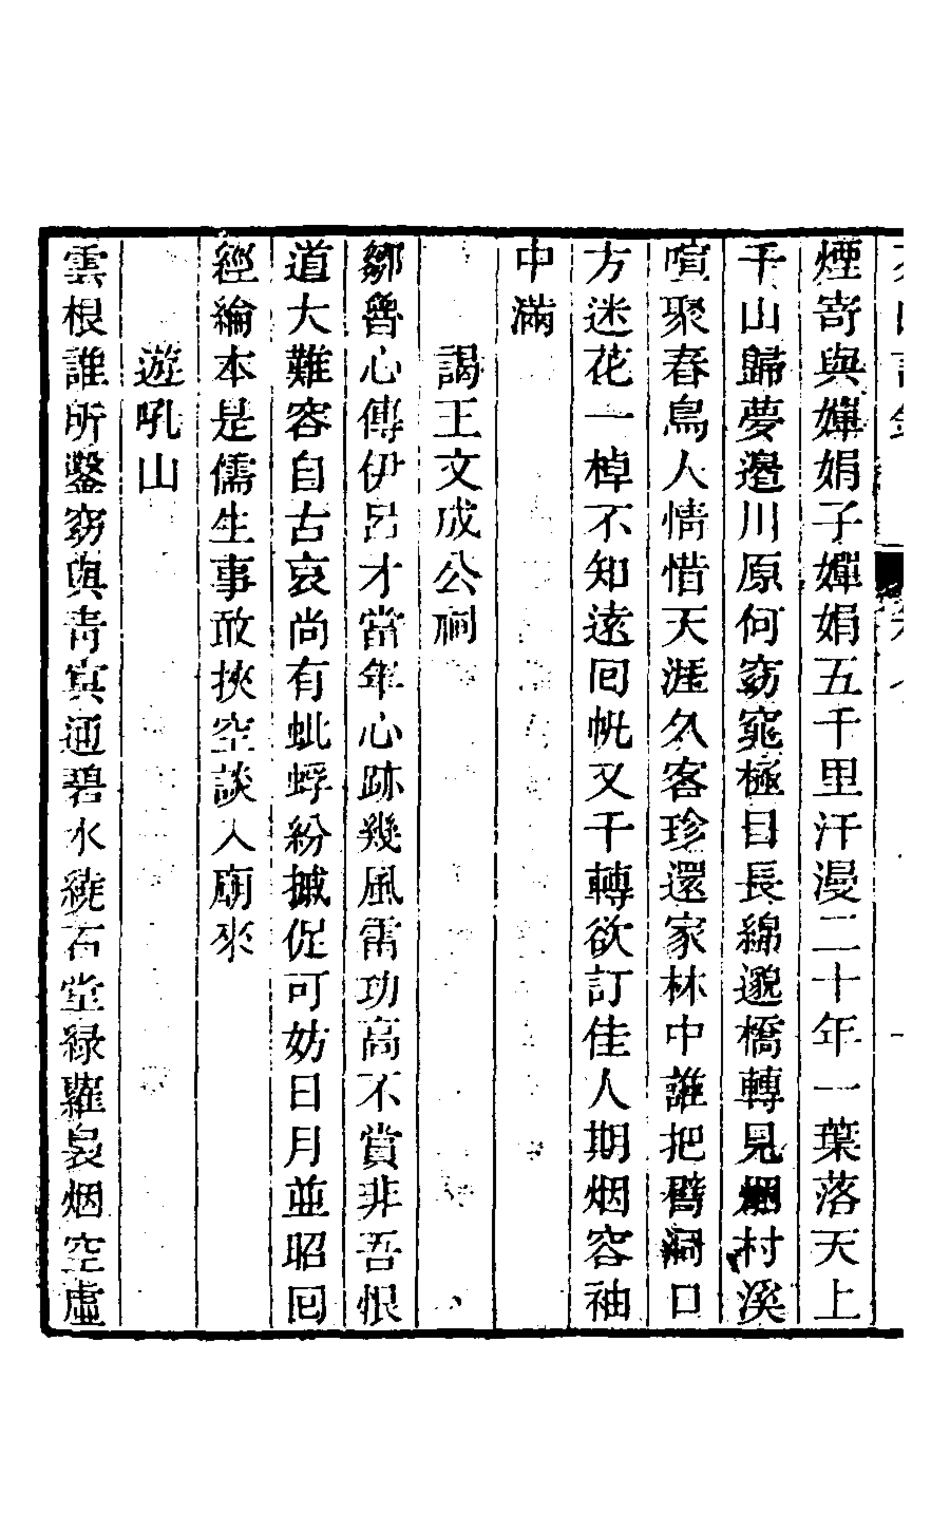 煙嵜與嬋娟子嬋娟五千里汗漫二十年一葉落天上
千山歸夢邊川原何窈窕極目長綿邈橋轉見烟村溪
喧聚春鳥人情惜天涯久客珍還家林中誰把臂洞口
方迷花一棹不知遠囘帆又千轉欲訂佳人期烟容袖
中滿
謁王文成公祠
鄒魯心傳伊呂才當年心跡幾風雷功高不賞非吾恨
道大難容自古哀尚有蚍蜉紛撼促可妨日月並昭囘
經綸本是儒生事敢挾空談入廟來
遊吼山
雲根誰所鑿窈與靑冥通碧水繞石堂緑蘿裊烟空虛